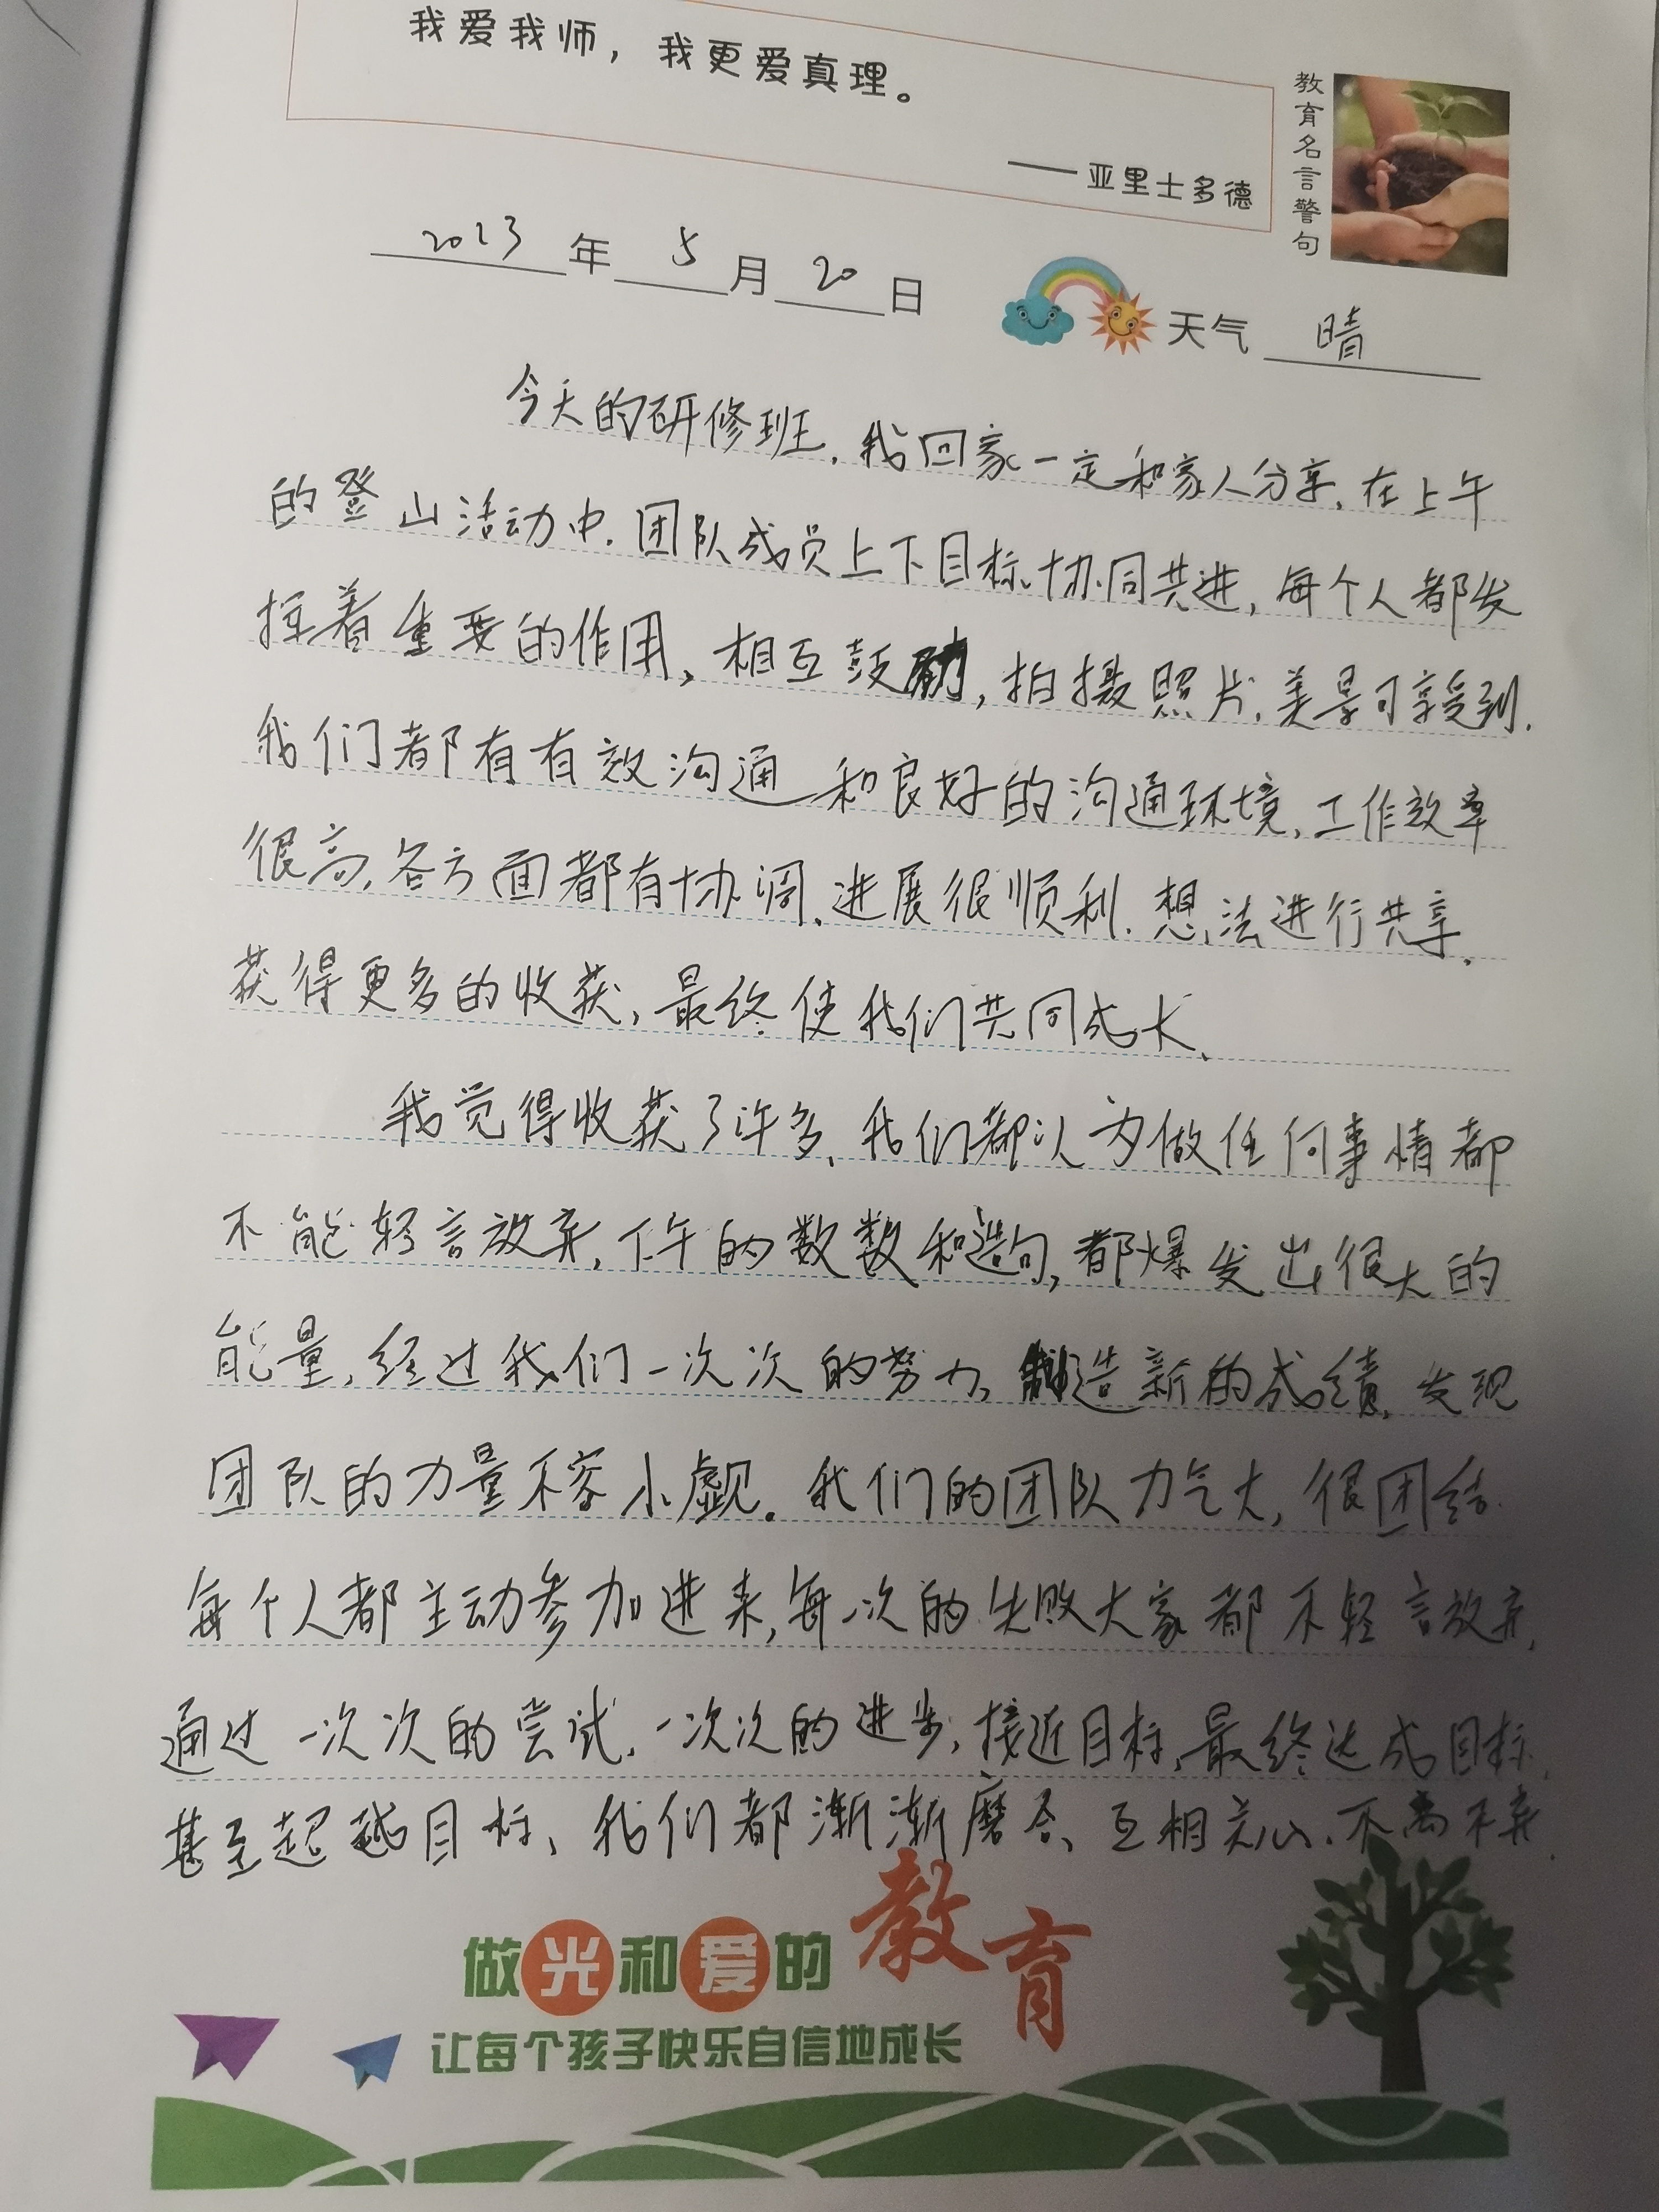 我爱我师，我更爱真理。
——亚里士多德
教育名言警句
2023年5月20日
天气 晴
今天的研修班，我回家一定和家人分享，在上午
的登山活动中，团队成员上下目标协同共进，每个人都发
挥着重要的作用，相互鼓励，拍摄照片，美景可享受到，
我们都有有效沟通和良好的沟通环境，工作效率
很高，各方面都有协调，进展很顺利，想法进行共享，
获得更多的收获，最终使我们共同成长、
我觉得收获了许多，我们都认为做任何事情都
不能轻言放弃，下午的数数和造句，都爆发出很大的
能量，经过我们一次次的努力，创造新的成绩，发现
团队的力量不容小觑。我们的团队力气大，很团结
每个人都主动参加进来，每一次的失败大家都不轻言放弃，
通过一次次的尝试，一次次的进步，接近目标，最终达成目标，
甚至超越目标、我们都渐渐磨合、互相关心、不离不弃．
做光和爱的教育
让每个孩子快乐自信地成长